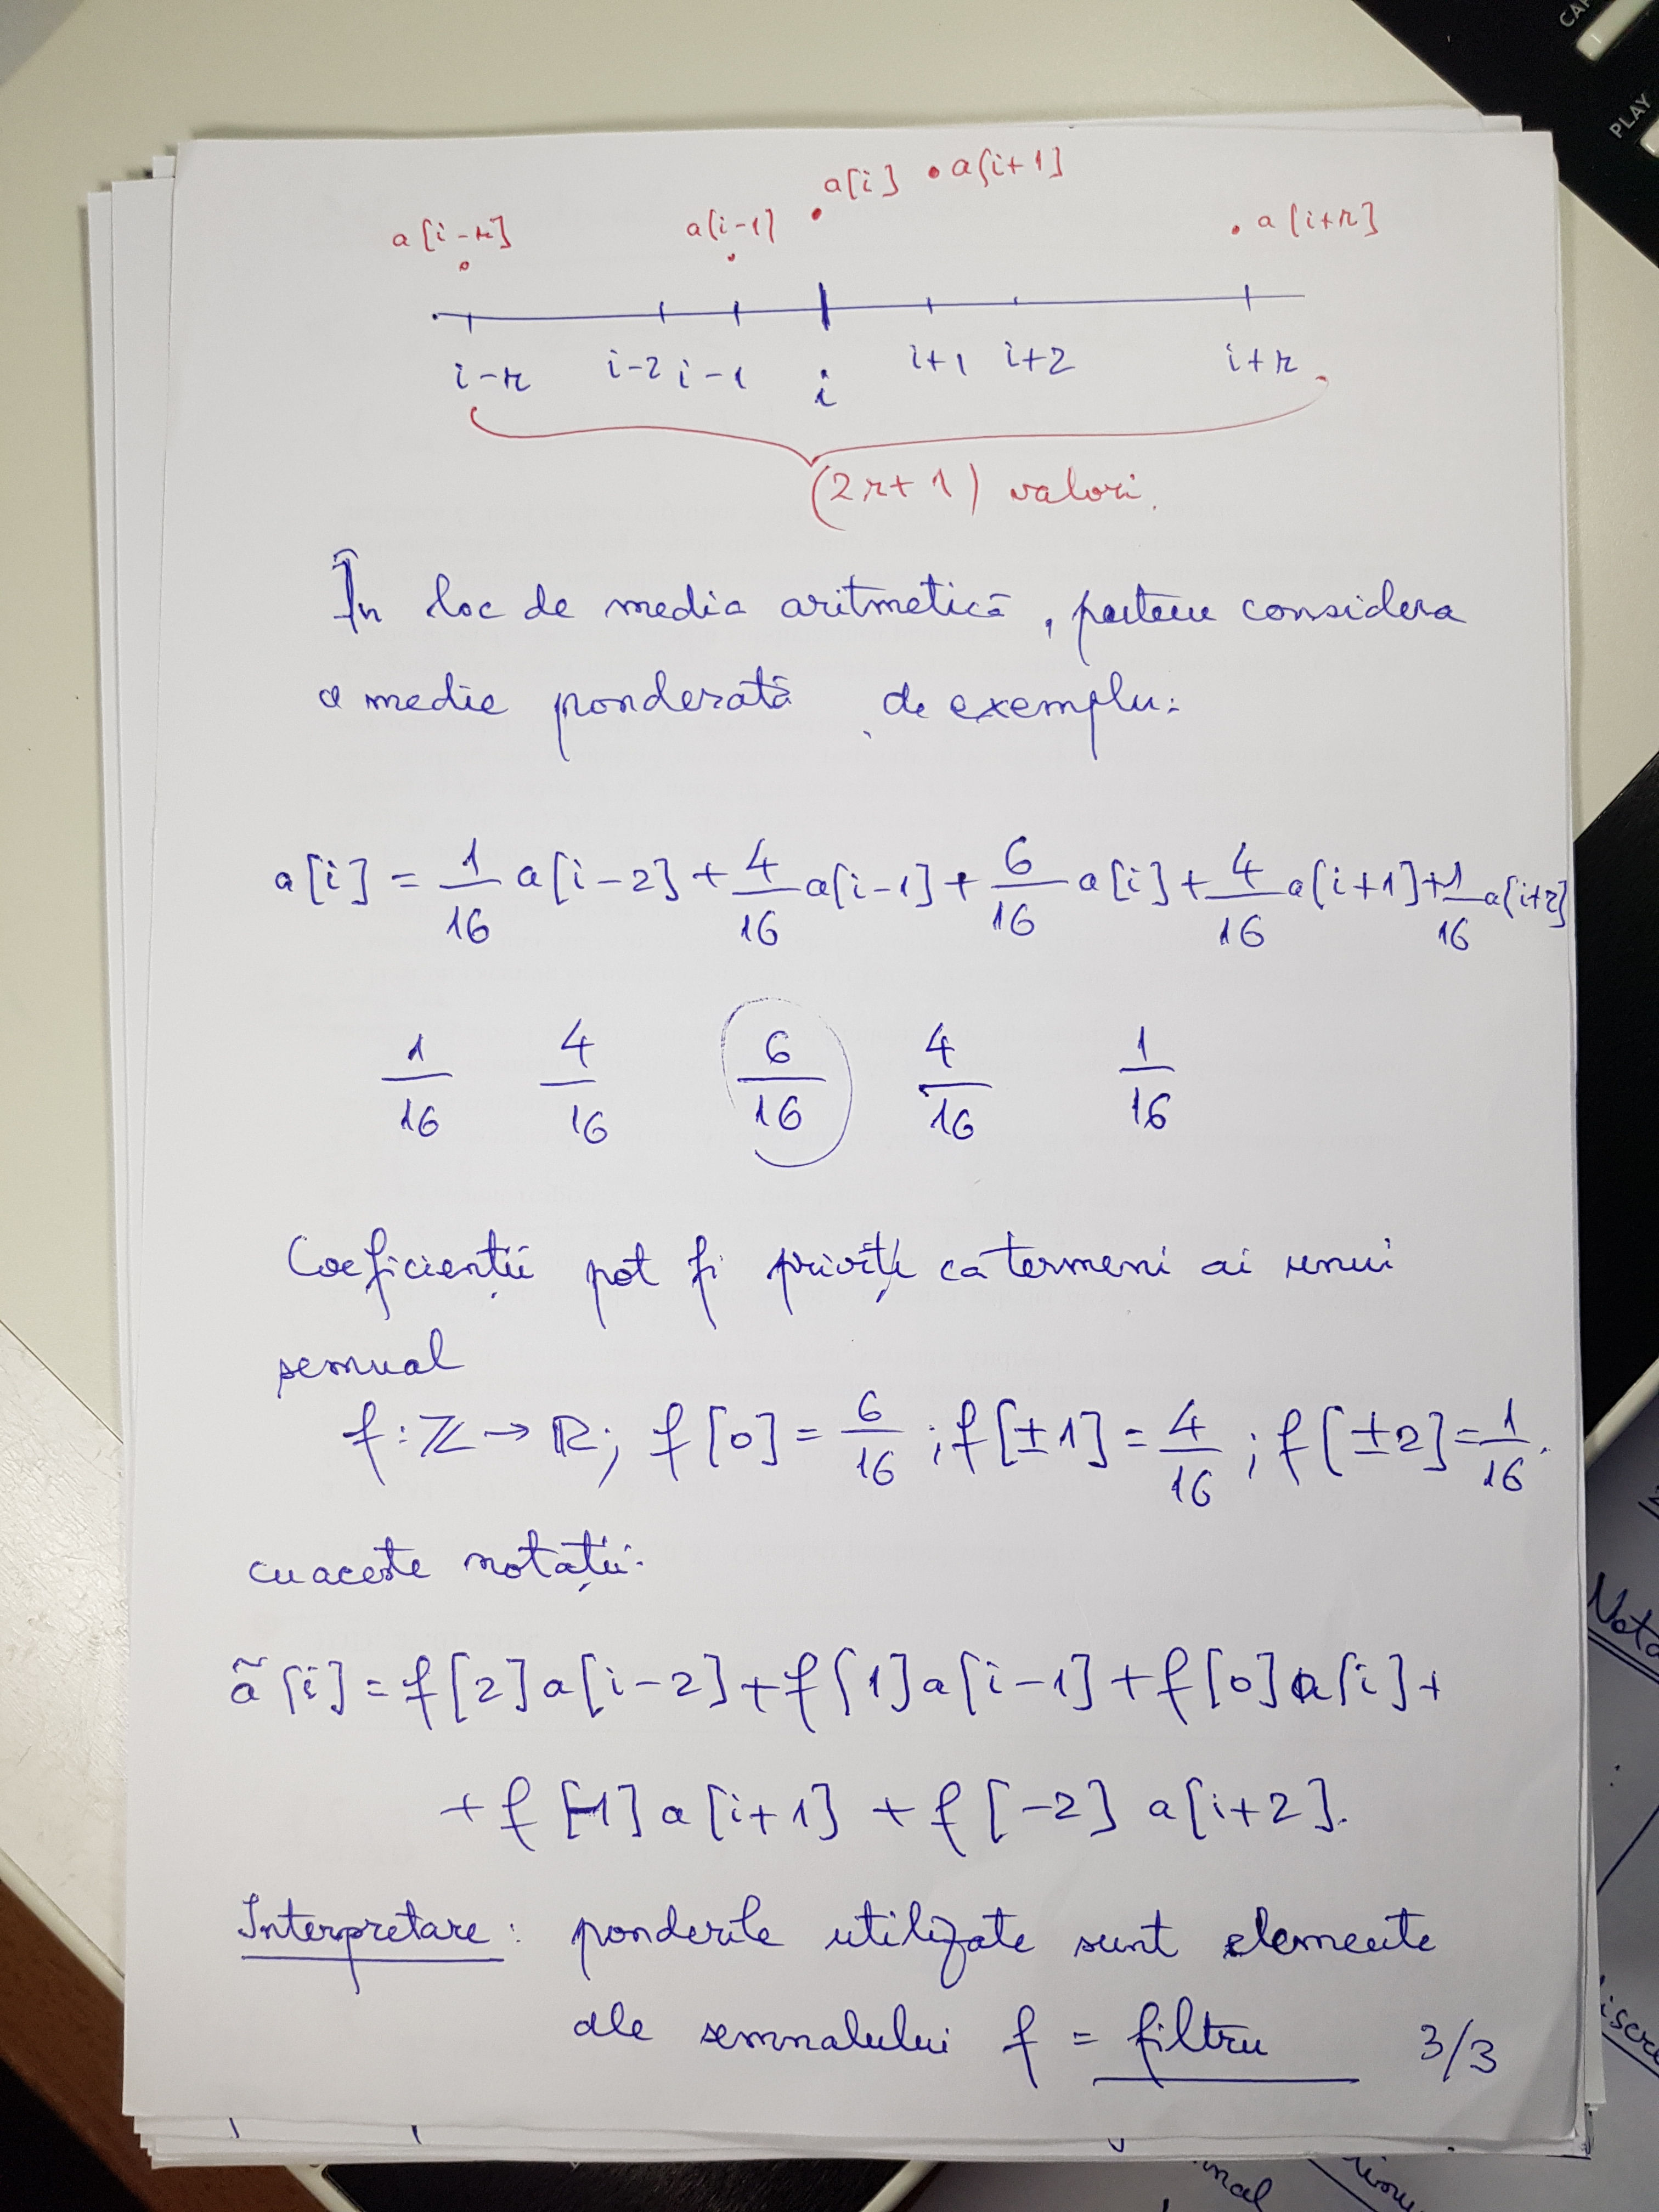 CAP
PLAY
a[i-r] a[i-1] a[i] a[i+1] a[i+r]
i-r i-2 i-1 i i+1 i+2 i+r
(2r+1) valori.
În loc de media aritmetică, putem considera
o medie ponderată de exemplu:
a[i] = 1/16 a[i-2] + 4/16 a[i-1] + 6/16 a[i] + 4/16 a[i+1] + 1/16 a[i+2]
1/16 4/16 6/16 4/16 1/16
Coeficienții pot fi priviți ca termeni ai unui
semnal
f: ℤ → ℝ; f[0] = 6/16; f[±1] = 4/16; f[±2] = 1/16.
cu aceste notații:
ã[i] = f[2] a[i-2] + f[1] a[i-1] + f[0] a[i] +
+ f[-1] a[i+1] + f[-2] a[i+2].
Interpretare: ponderile utilizate sunt elemente
ale semnalului f = filtru 3/3